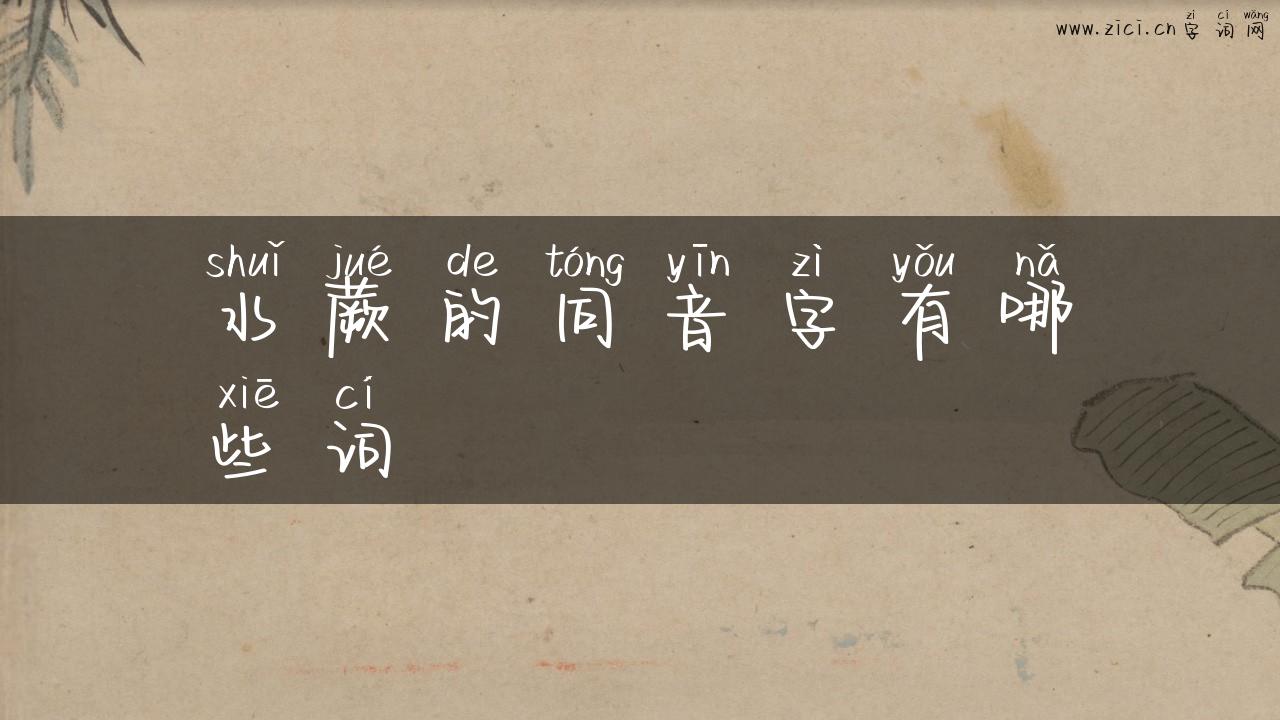 zì cí wǎng
www.zici.cn 字 词 网
shuǐ jué de tóng yīn zì yǒu nǎ
水 蕨 的 同 音 字 有 哪
xiē cí
些 词